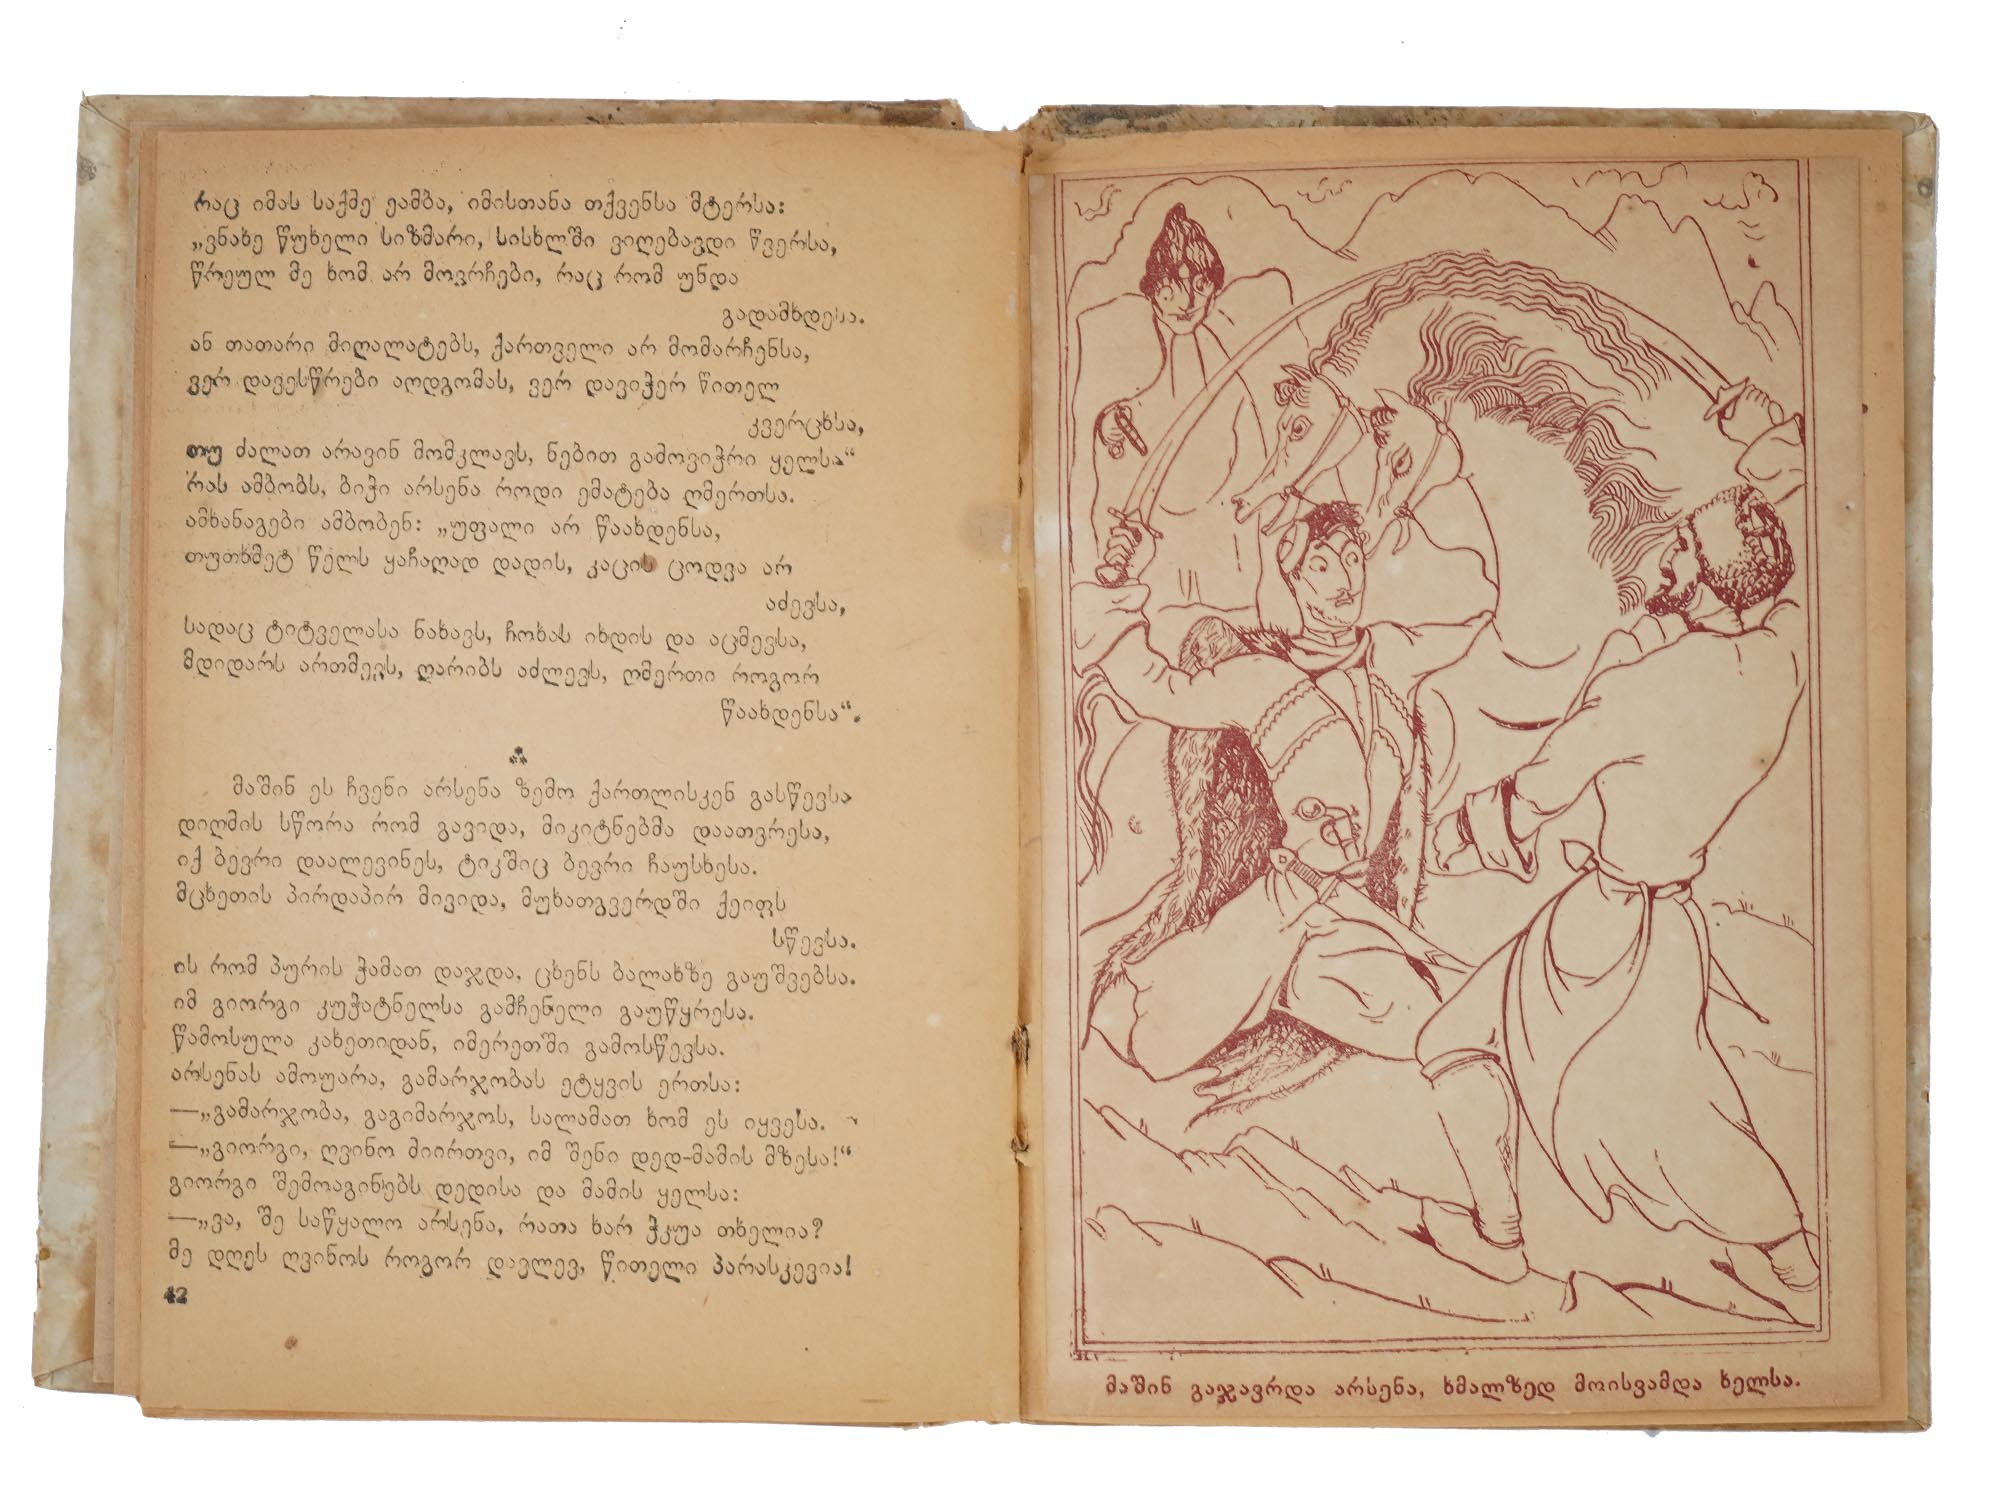 რაც იმას საქმე ეამბა, იმისთანა თქვენსა მტერსა:
„ვნახე წუხელი სიზმარი, სისხლში ვიღებავდი წვერსა,
წრეულ მე ხომ არ მოვრჩები, რაც რომ უნდა
გადამხდესა.
ან თათარი მიღალატებს, ქართველი არ მომარჩენსა,
ვერ დავესწრები აღდგომას, ვერ დავიჭერ წითელ
კვერცხსა,
თუ ძალათ არავინ მომკლავს, ნებით გამოვიჭრი ყელსა“
რას ამბობს, ბიჭი არსენა როდი ემატება ღმერთსა.
ამხანაგები ამბობენ: „უფალი არ წაახდენსა,
თუთხმეტ წელს ყაჩაღად დადის, კაცის ცოდვა არ
აძევსა,
სადაც ტიტველასა ნახავს, ჩოხას იხდის და აცმევსა,
მდიდარს ართმევს, ღარიბს აძლევს, ღმერთი როგორ
წაახდენსა“.
მაშინ ეს ჩვენი არსენა ზემო ქართლისკენ გასწევსა
დიღმის სწორა რომ გავიდა, მიკიტნებმა დაათვრესა,
იქ ბევრი დაალევინეს, ტიკშიც ბევრი ჩაუსხესა.
მცხეთის პირდაპირ მივიდა, მუხათგვერდში ქეიფს
სწევსა.
ის რომ პურის ჭამათ დაჯდა, ცხენს ბალახზე გაუშვებსა.
იმ გიორგი კუჭატნელსა გამჩენელი გაუწყრესა.
წამოსულა კახეთიდან, იმერეთში გამოსწევსა.
არსენას ამოუარა, გამარჯობას ეტყვის ერთსა:
—„გამარჯობა, გაგიმარჯოს, სალამათ ხომ ეს იყვესა.
—„გიორგი, ღვინო მიირთვი, იმ შენი დედ-მამის მზესა!“
გიორგი შემოაგინებს დედისა და მამის ყელსა:
—„ვა, შე საწყალო არსენა, რათა ხარ ჭკუა თხელია?
მე დღეს ღვინოს როგორ დავლევ, წითელი პარასკევია!
42
მაშინ გაჯავრდა არსენა, ხმალზედ მოისვამდა ხელსა.